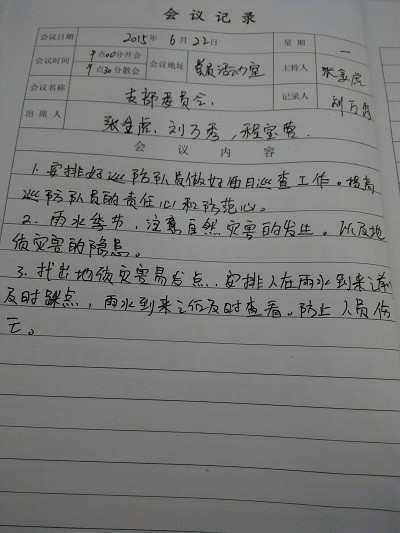 会议记录
会议日期 2015年6月22日 星期 一
会议时间 点00分开会 点30分散会 会议地址 党员活动室 主持人
会议名称 支部委员会. 记录人
出席人
会议内容
1. 安排好巡防队员做好雨日巡查工作。提高
巡防队员的责任心和防范心。
2. 雨水季节,注意自然灾害的发生。以及地
质灾害的隐患。
3. 找出地质灾害易发点,安排人在雨水到来之前
及时踩点,雨水到来之后及时查看。防止人员伤
亡。